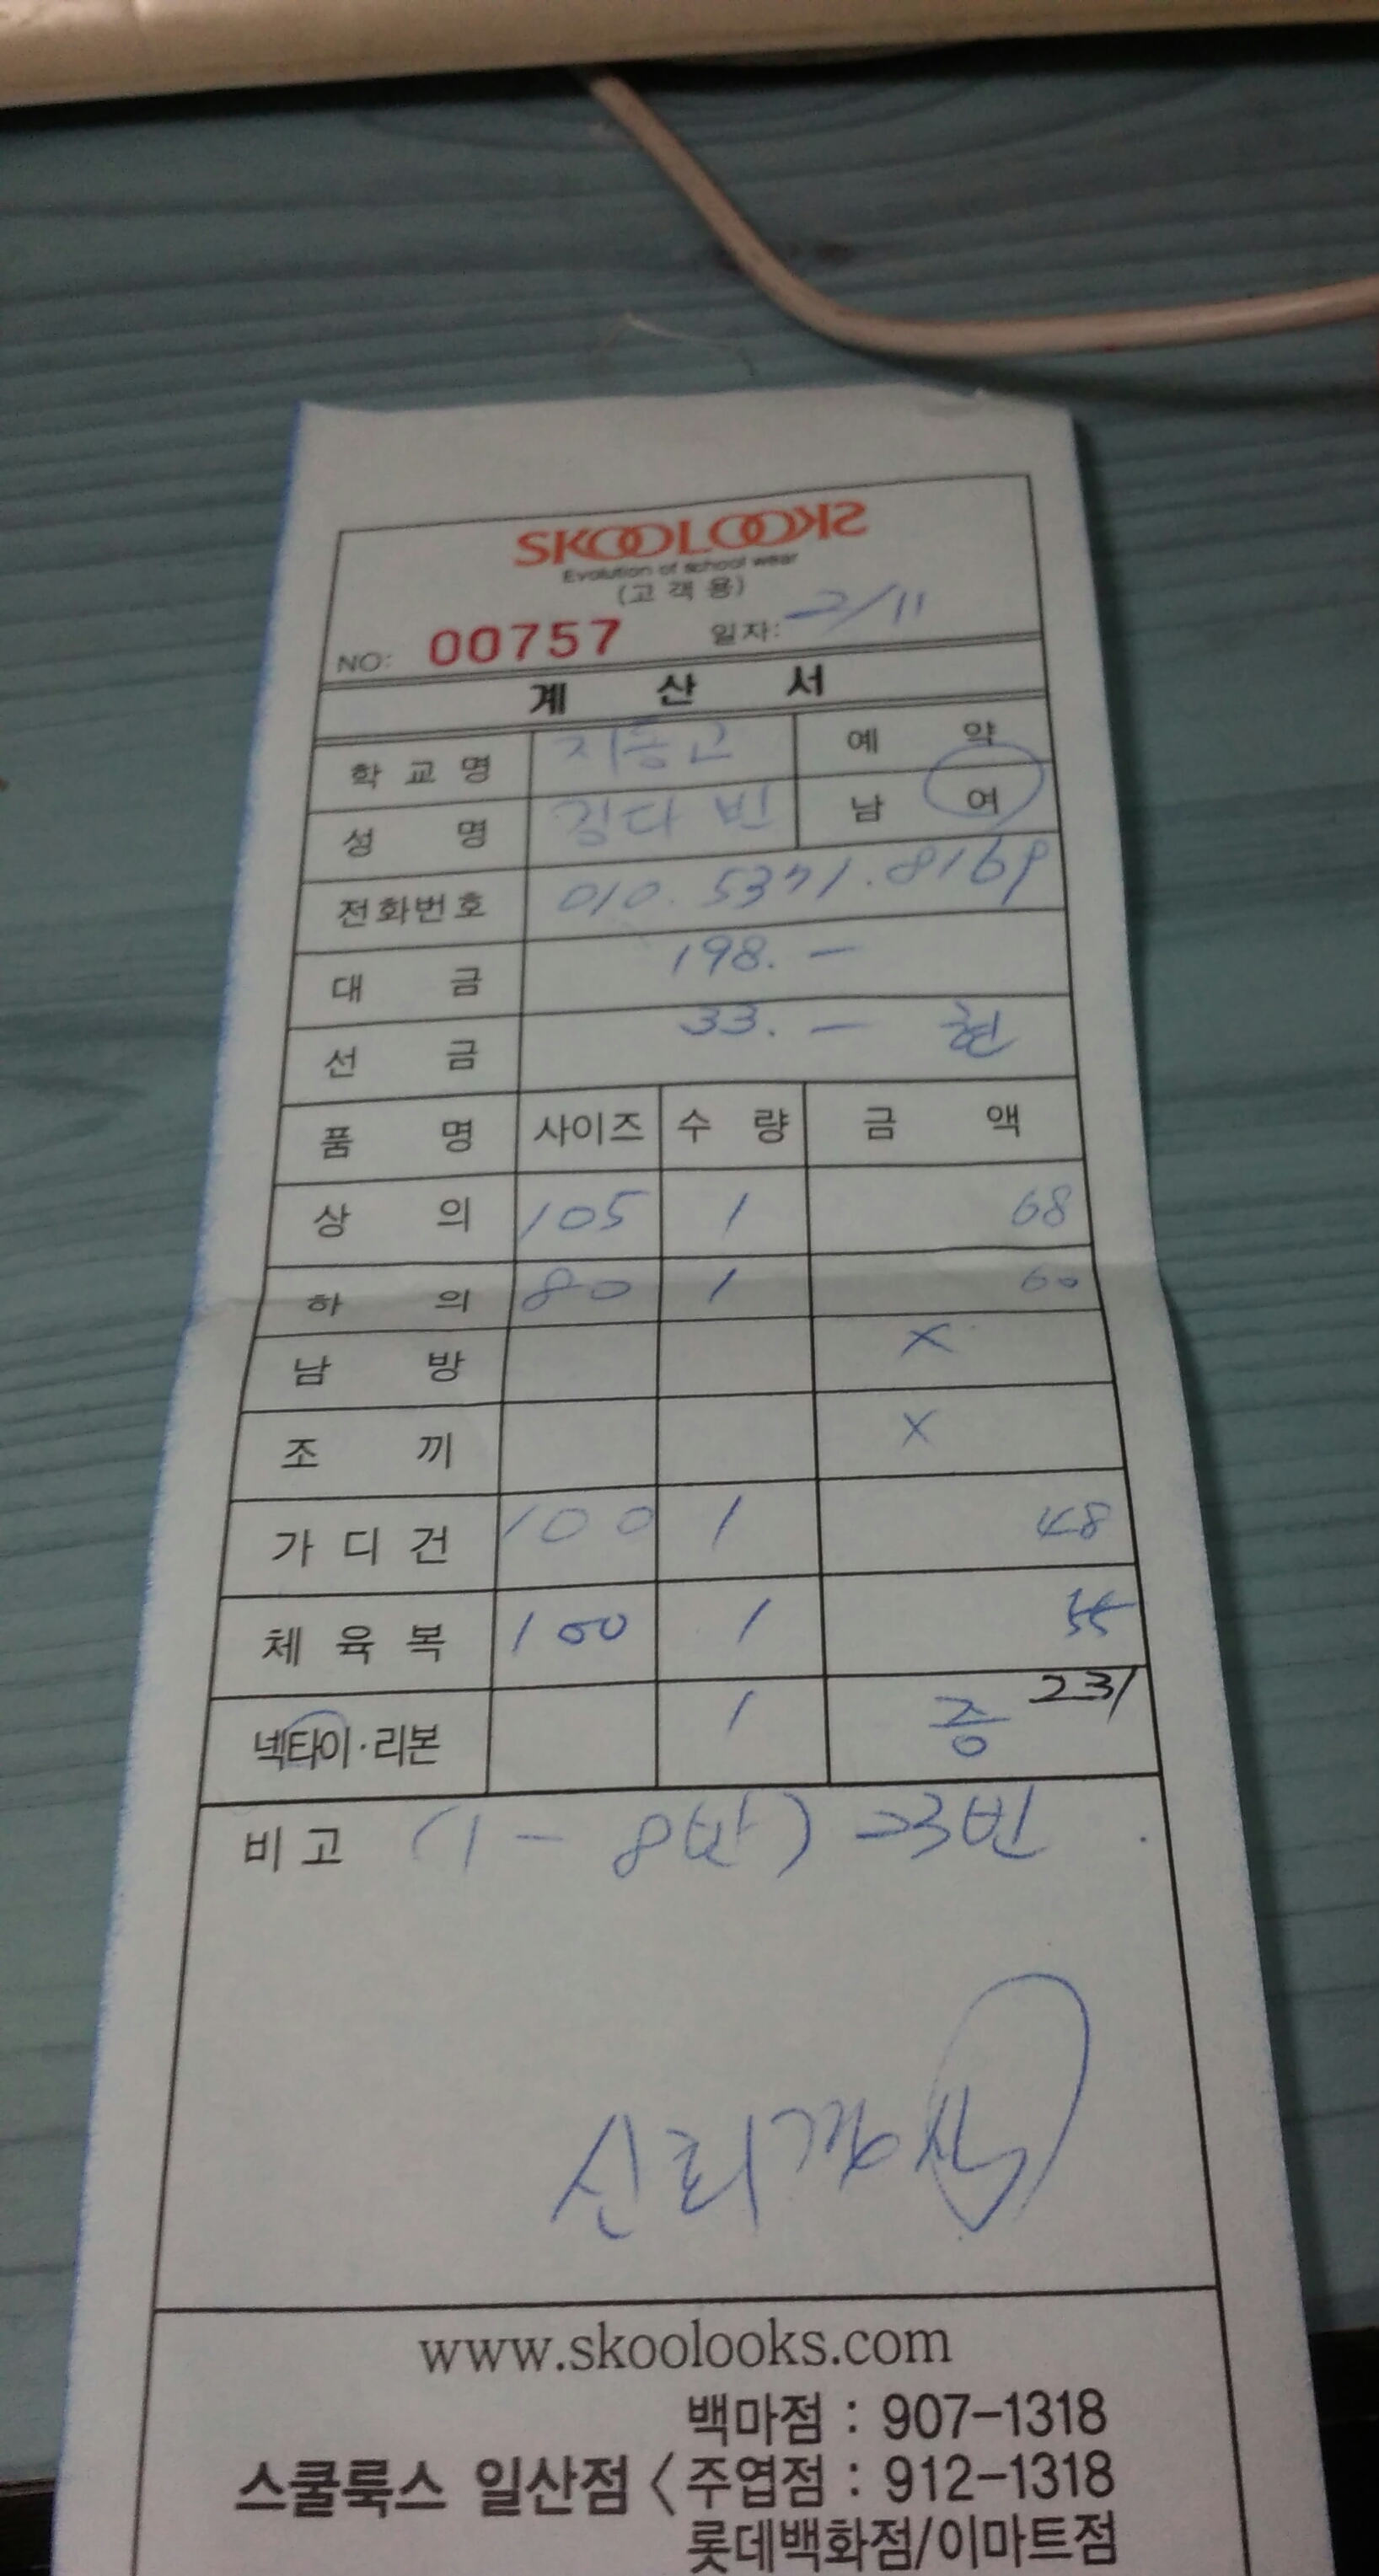 SKOOLOOKS
Evolution of school wear
(고객용)
NO: 00757 일자: 2/11
계 산 서
학교명 저동고 예 약
성 명 김다빈 남 여
전화번호 010. 5371. 8169
대 금 198. -
선 금 33. - 현
품 명 사이즈 수 량 금 액
상 의 105 1 68
하 의 80 1 60
남 방 X
조 끼 X
가디건 100 1 48
체육복 100 1 55
231
넥타이·리본 1 증
비고 (1-8반) 23번
www.skoolooks.com
백마점 : 907-1318
스쿨룩스 일산점 < 주엽점 : 912-1318
롯데백화점/이마트점